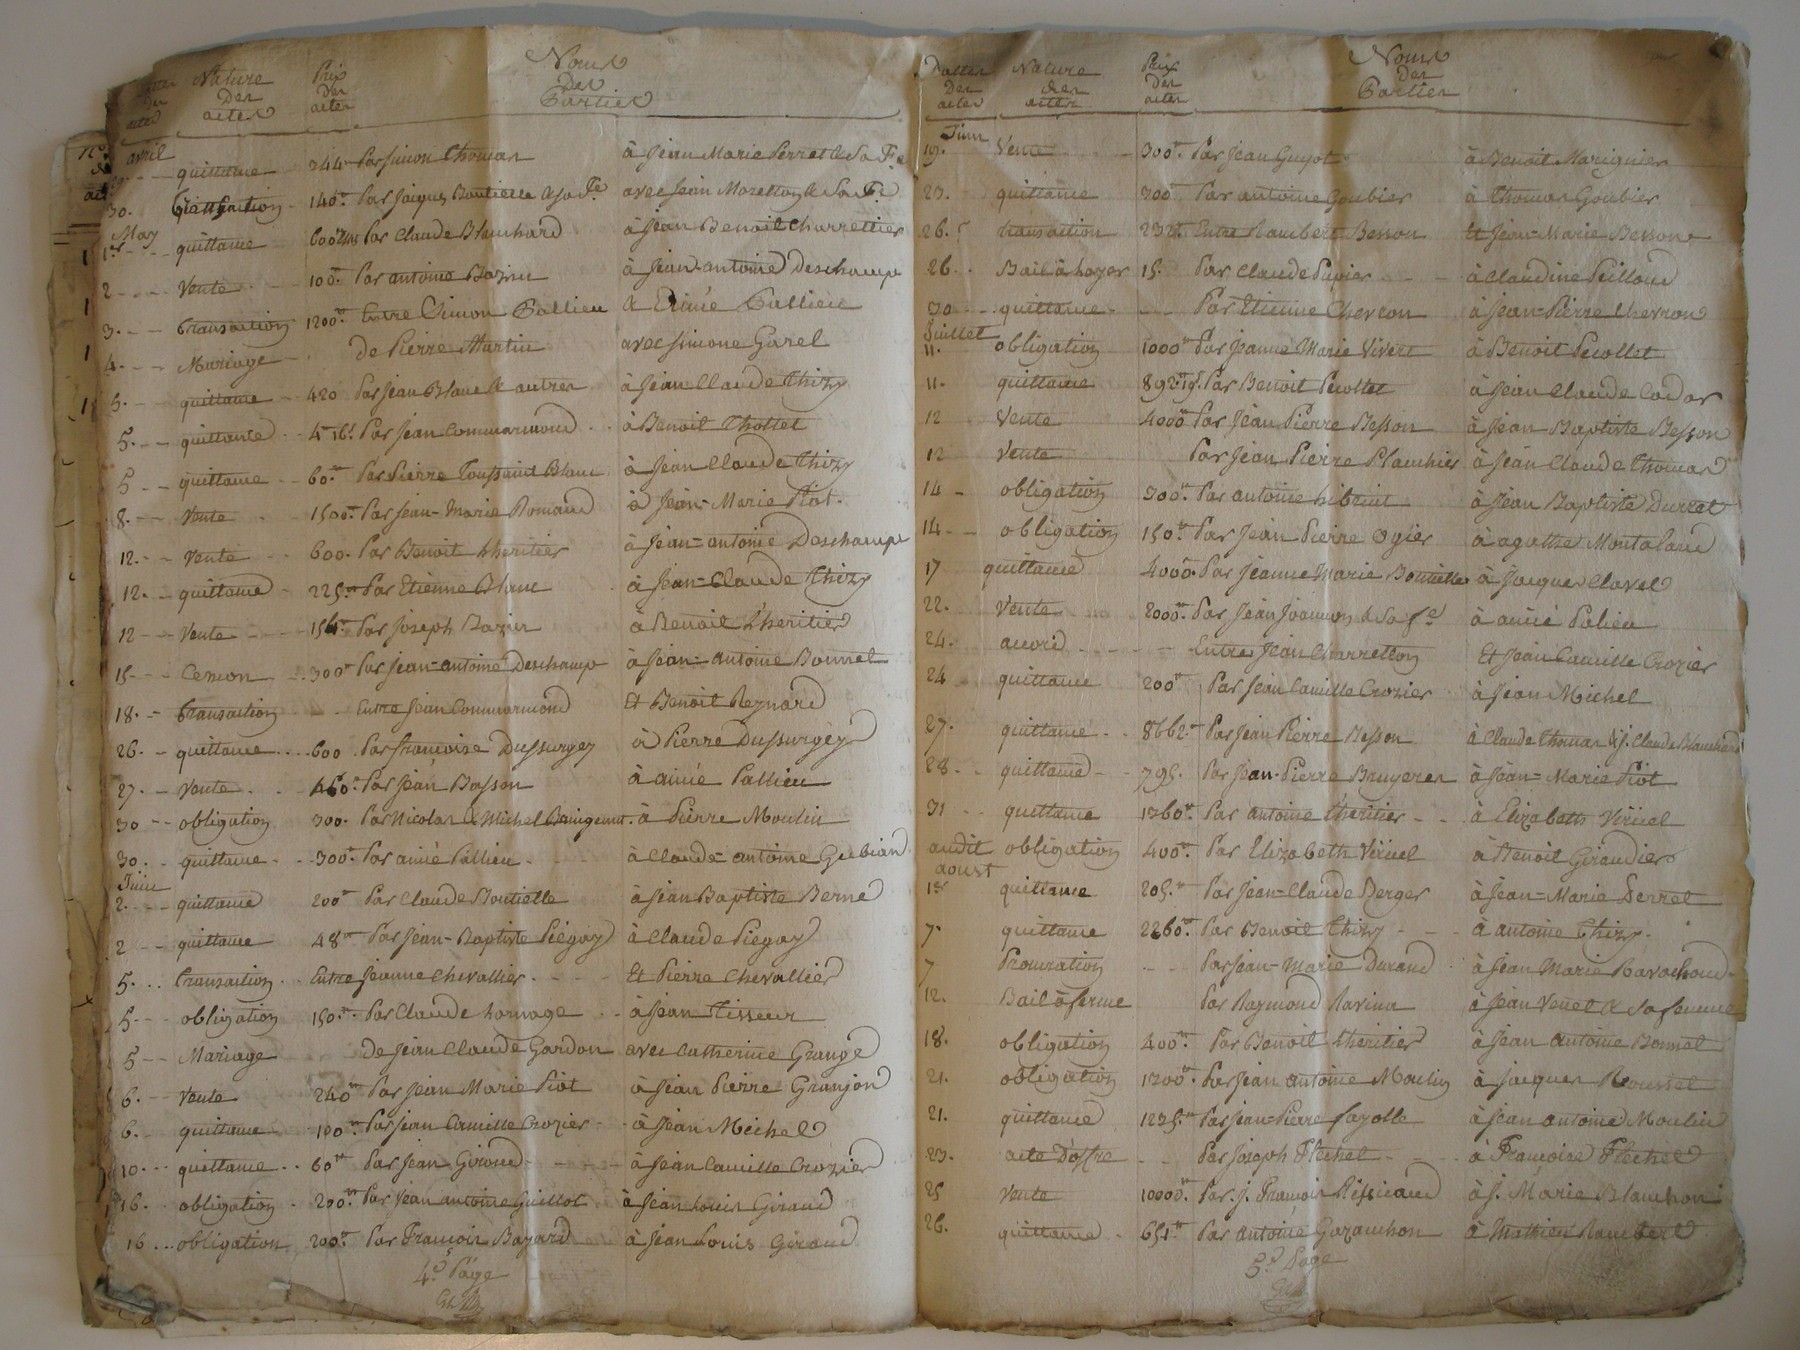 Nature Prix Noms
des des des
actes actes Parties
avril
quittance 244 Par Simon Thomas à Jean Marie Perret & Sa Fe
30. transaction 140tt Par Jacques Boutielle & Sa Fe avec Jean Moretton & Sa Fe
May
1er quittance 600tt Par Claude Blanchard à Jean Benoit Charrettier
2 Vente 100tt Par antoine Bazin à Jean antoine Deschamps
3. transaction 1200tt Entre Simon Pallieu & Eimée Pallieu
4 Mariage de Pierre Martin avec Simone Garel
5. quittance 420 Par Jean Blanc & autres à Jean Claude Thizy
5. quittance 4tt 16s Par Jean Commarmond à Benoit Thollet
5 quittance 60tt Par Pierre Toussaint Blanc à Jean Claude Thizy
8. Vente 1500tt Par Jean-Marie Romand à Jean-Marie Piot.
12. Vente 600. Par Benoit Lheritier à Jean-antoine Deschamps
12. quittance 225tt Par Etienne Blanc à Jean-Claude Thizy
12 Vente Par Joseph Bazin à Benoit L'heritier
15 Cession 300tt Par Jean-antoine Deschamps à Jean-antoine Bonnet
18. transaction Entre Jean Commarmond Et Benoit Reynard
26. quittance 600 Par françoise Dussurgey à Pierre Dussurgey
27. Vente 460tt Par Jean Basson à aimée Pallieu
30 obligation 300. Par Nicolas & Michel à Pierre Moulin
30. quittance 300tt Par aimé Pallieu à Claude antoine Gubian
Juin
2. quittance 200tt Par Claude Boutielle à Jean Baptiste Berne
2 quittance 48tt Par Jean-Baptiste Piégay à Claude Piegay
5. transaction Entre Jeanne Chevallier Et Pierre Chevallier
5 obligation 150tt Par Claude homage à Jean Tisseur
5 Mariage de Jean Claude Gardon avec Catherine Grange
6. Vente 240tt Par Jean Marie Piot à Jean Pierre Granjon
6. quittance 100tt Par Jean Camille Crozier à Jean Michel
10. quittance 60tt Par Jean Giroud à Jean Camille Crozier
16. obligation 200tt Par Jean antoine Guillot à Jean Louis Giraud
16 obligation 200tt Par François Bayard à Jean Louis Giraud
4e Page
Dattes Nature Prix Noms
Des des des des
actes actes actes Parties
Juin
19. Vente 300tt Par Jean Guyot à Benoit Marignier
23. quittance 300tt Par antoine Goubier à Thomas Goubier
26. transaction 232tt Entre Rambert Besson Et Jean-Marie Besson
26. Bail à Loyer 15. Par Claude Pupier à Claudine Peilloud
30 quittance Par Etienne Chevron à Jean-Pierre Chevron
Juillet
11. obligation 1000tt Par Jeanne Marie Vivert à Benoit Pecollet
11. quittance 892tt 19s Par Benoit Pecollet à Jean Claude Cadar
12 Vente 4000tt Par Jean Pierre Besson à Jean Baptiste Besson
12 Vente Par Jean Pierre Planchier à Jean Claude Thomas
14 obligation 300tt Par antoine à Jean Baptiste Durret
14 obligation 150tt Par Jean Pierre Ogier à agathe Montaland
17 quittance 4000tt Par Jeanne Marie Boutielle à Jacques Clavel
22. Vente 2000tt Par Jean Joannon & Sa fe à aimé Palieu
24. accord Entre Jean Charretton Et Jean Camille Crozier
24 quittance 200tt Par Jean Camille Crozier à Jean Michel
27. quittance 8662tt Par Jean Pierre Besson à Claude Thomas & J. Claude Blanchard
28. quittance 795. Par Jean-Pierre Bruyeres à Jean-Marie Piot
31 quittance 1360tt Par antoine L'heritier à Elizabeth Viricel
audit obligation 400tt Par Elizabeth Viricel à Benoit Giraudier
aoust
1er quittance 205tt Par Jean-Claude Berger à Jean-Marie Perret
7. quittance 2260tt Par Benoit Thizy à antoine Thizy.
7 Procuration Par Jean-Marie Durand à Jean Marie Ravachoud
12. Bail à ferme Par Raymond Ravina à Jean Venet & Sa femme
18. obligation 400tt Par Benoit L'heritier à Jean antoine Bonnet
21. obligation 1200tt Par Jean antoine Moulin à Jacques Roussel
21. quittance 1235tt Par Jean-Pierre fayolle à Jean antoine Moulin
23. acte D'offre Par Joseph Flechet à Françoise Flechet
25 Vente 10000tt Par J. François à J. Marie Blanchon
26. quittance 651tt Par antoine Gazanchon à Mathieu Rambert
5e Page